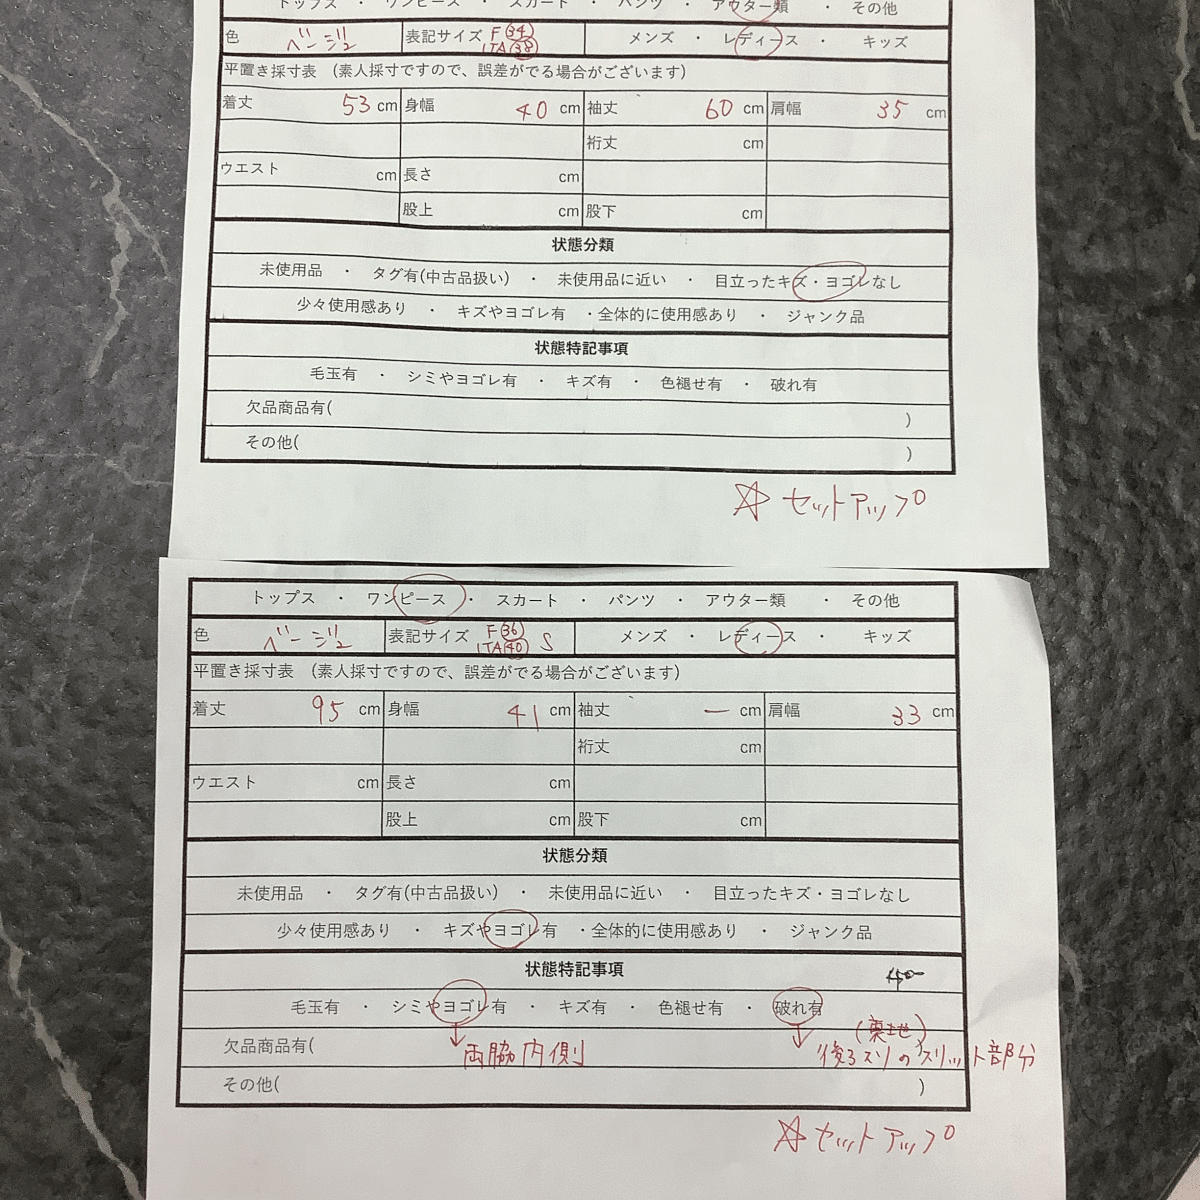 トップス ・ ワンピース ・ スカート ・ パンツ ・ アウター類 ・ その他
色 ベージュ 表記サイズ F(34) メンズ ・ レディース ・ キッズ
ITA(38)
平置き採寸表 (素人採寸ですので、誤差がでる場合がございます)
着丈 53 cm 身幅 40 cm 袖丈 60 cm 肩幅 35 cm
裄丈 cm
ウエスト cm 長さ cm
股上 cm 股下 cm
状態分類
未使用品 ・ タグ有(中古品扱い) ・ 未使用品に近い ・ 目立ったキズ・ヨゴレなし
少々使用感あり ・ キズやヨゴレ有 ・全体的に使用感あり ・ ジャンク品
状態特記事項
毛玉有 ・ シミやヨゴレ有 ・ キズ有 ・ 色褪せ有 ・ 破れ有
欠品商品有( )
その他( )
☆ セットアップ
トップス ・ ワンピース ・ スカート ・ パンツ ・ アウター類 ・ その他
色 ベージュ 表記サイズ F(36) S メンズ ・ レディース ・ キッズ
ITA(40)
平置き採寸表 (素人採寸ですので、誤差がでる場合がございます)
着丈 95 cm 身幅 41 cm 袖丈 ー cm 肩幅 33 cm
裄丈 cm
ウエスト cm 長さ cm
股上 cm 股下 cm
状態分類
未使用品 ・ タグ有(中古品扱い) ・ 未使用品に近い ・ 目立ったキズ・ヨゴレなし
少々使用感あり ・ キズやヨゴレ有 ・全体的に使用感あり ・ ジャンク品
状態特記事項
毛玉有 ・ シミやヨゴレ有 ・ キズ有 ・ 色褪せ有 ・ 破れ有
(裏地)
欠品商品有( 両脇内側 後ろスソのスリット部分
その他( )
☆ セットアップ